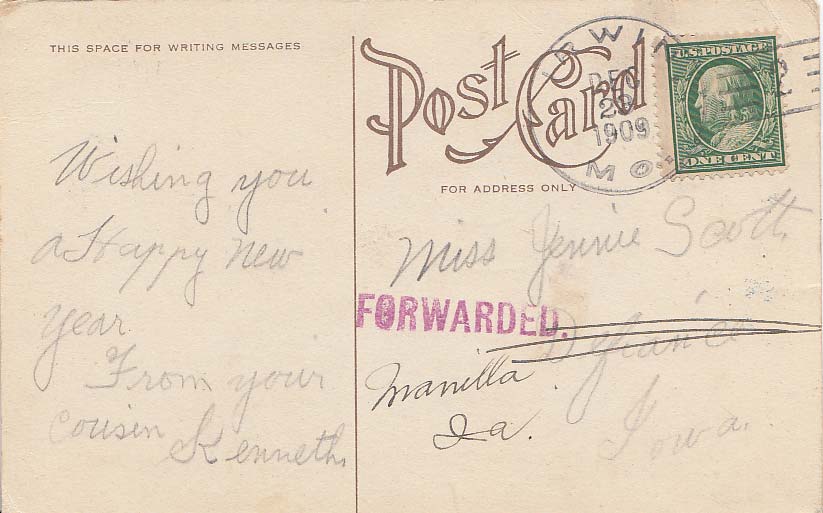 THIS SPACE FOR WRITING MESSAGES
Wishing you
a Happy New
year
From your
cousin
Kenneth.
Post Card
FOR ADDRESS ONLY
IRWIN
DEC
1909
MO
U.S. POSTAGE
ONE CENT
Miss Jennie Scott
FORWARDED.
Defiance
Manilla
Ia.
Iowa.